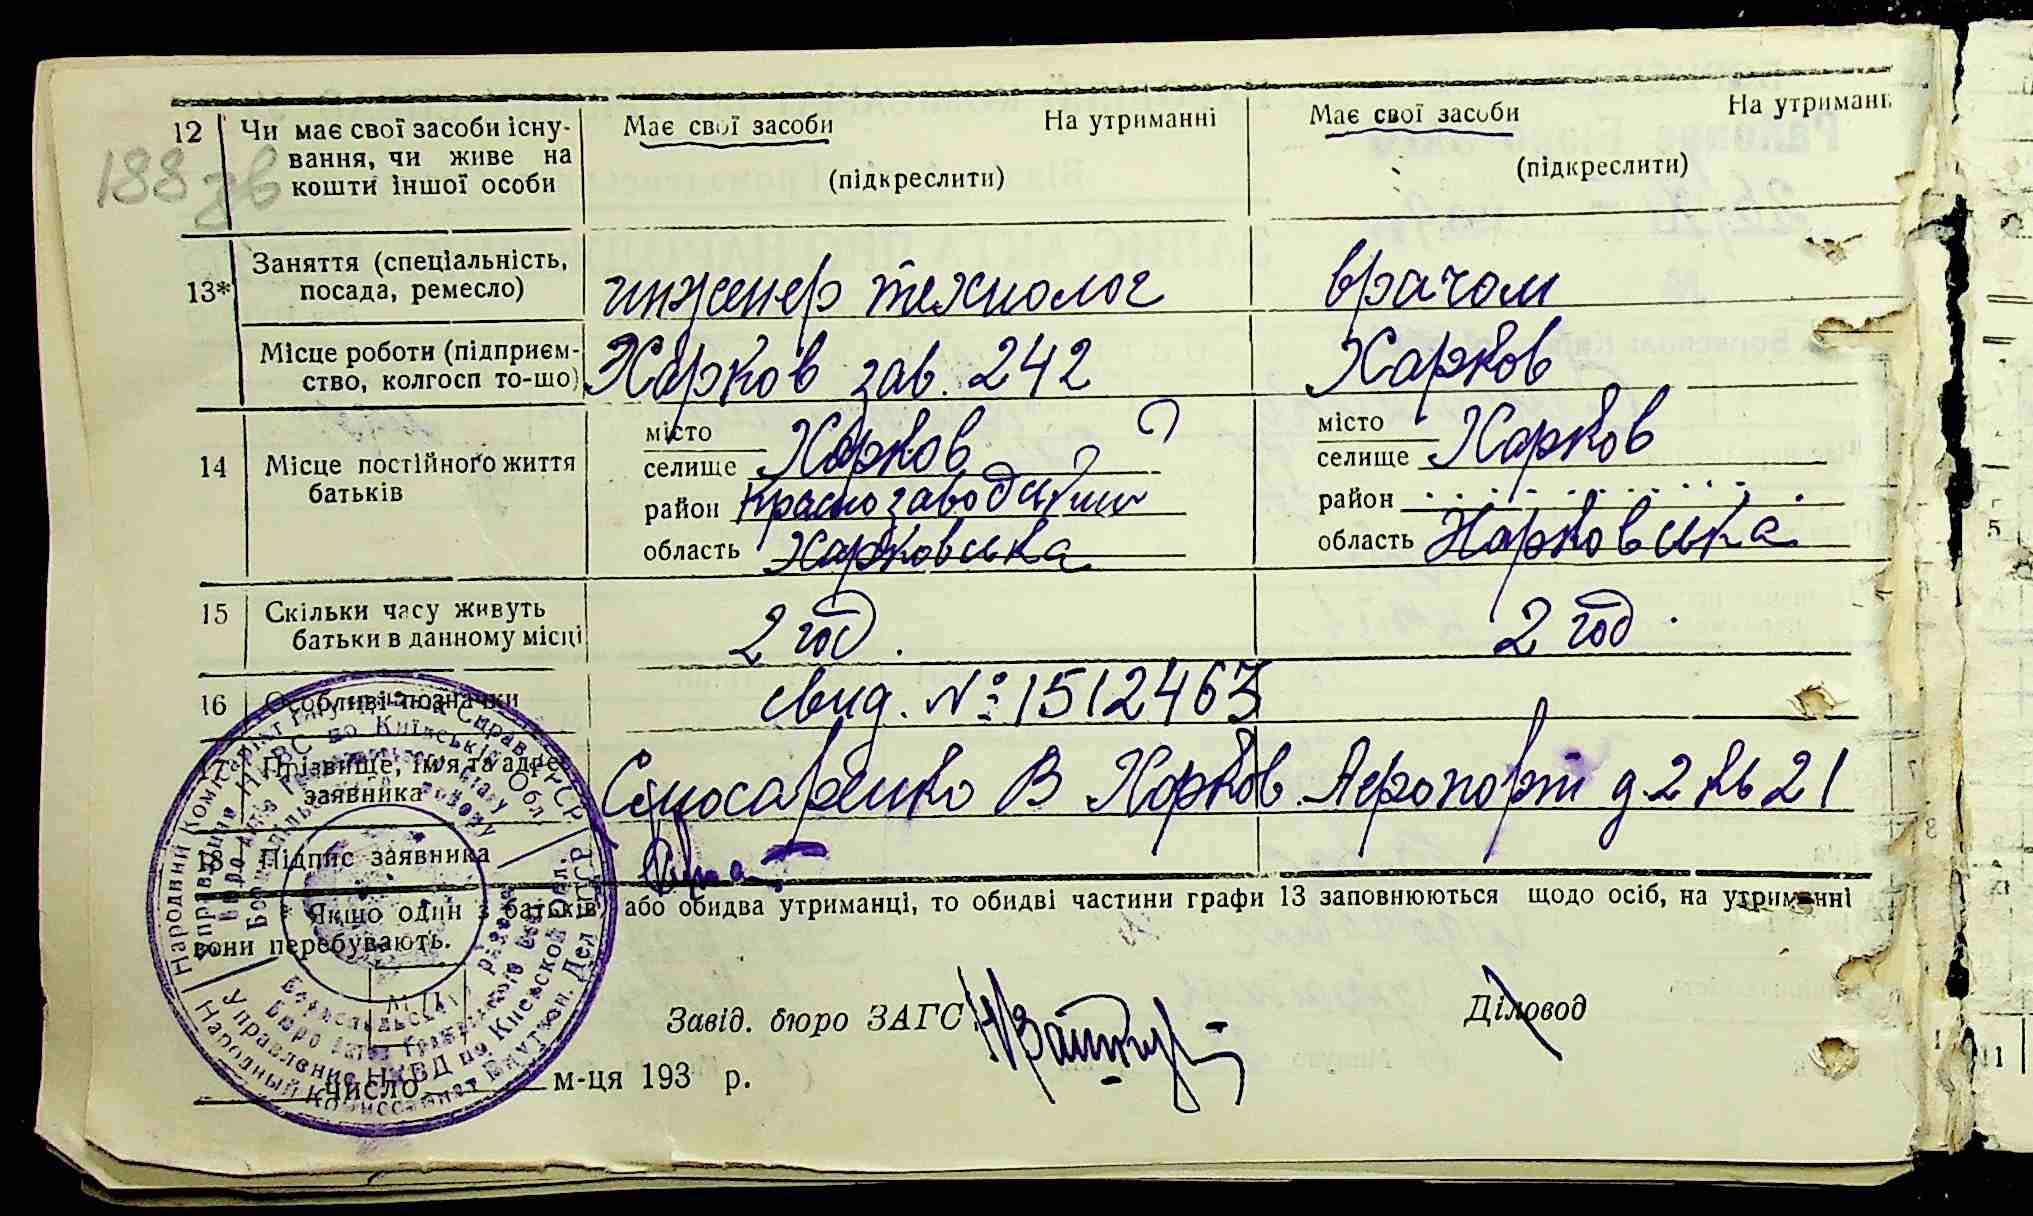 12 Чи має свої засоби існу- Має свої засоби На утриманні Має свої засоби На утриманн
вання, чи живе на
кошти іншої особи (підкреслити) (підкреслити)
188 зв
Заняття (спеціальність,
13* посада, ремесло) инженер технолог врачом
Місце роботи (підприєм-
ство, колгосп то-що) Харков зав. 242 Харков
місто місто
14 Місце постійного життя селище Харков селище Харков
батьків район Краснозаводський район
область Харковська область Харковська
15 Скільки часу живуть
батьки в данному місці 2 год. 2 год.
16 Особливі позначки свид. №1512463
17 Прізвище, ім'я та адре-
заявника Слюсаренко В Харков. Аеропорт д. 2 кв 21
18 Підпис заявника
* Якщо один з батьків, або обидва утриманці, то обидві частини графи 13 заповнюються щодо осіб, на утриманні
вони перебувають.
М П
Завід. бюро ЗАГС Діловод
число м-ця 193 р.
Народний Комісаріат Внутрішніх Справ УРСР
Управління НКВС по Київській Обл.
Народный Комиссариат Внутрен. Дел УССР
Управление НКВД по Киевской Обл.
5
11